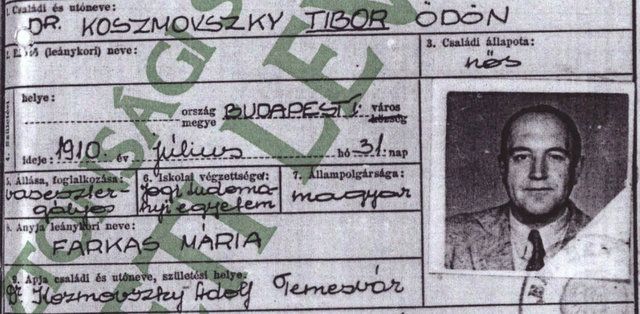 1. Családi és utóneve:
DR. KOSZMOVSZKY TIBOR ÖDÖN
(leánykori) neve:
3. Családi állapota:
nős
4. Születési
helye:
ország
megye
BUDAPEST I.
város
község
ideje: 1910. év július hó 31. nap
5. Állása, foglalkozása:
vaseszter
gályos
6. Iskolai végzettsége:
jogi tudomá
nyi egyetem
7. Állampolgársága:
magyar
8. Anyja leánykori neve:
FARKAS MÁRIA
9. Apja családi és utóneve, születési helye.
Dr. Kozmovszky Adolf Temesvár